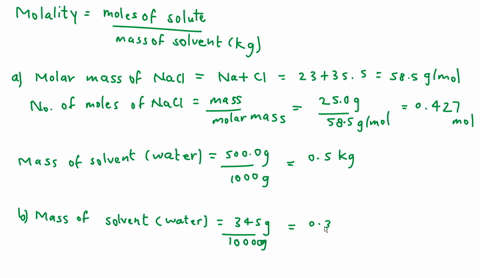 Molality = moles of solute
mass of solvent (kg)
a) Molar mass of NaCl = Na+Cl = 23+35.5 = 58.5 g/mol
No. of moles of NaCl = mass = 25.0g = 0.427
molar mass 58.5 g/mol mol
Mass of solvent (water) = 500.0g = 0.5 kg
1000g
b) Mass of solvent (water) = 345g = 0.3
10000g